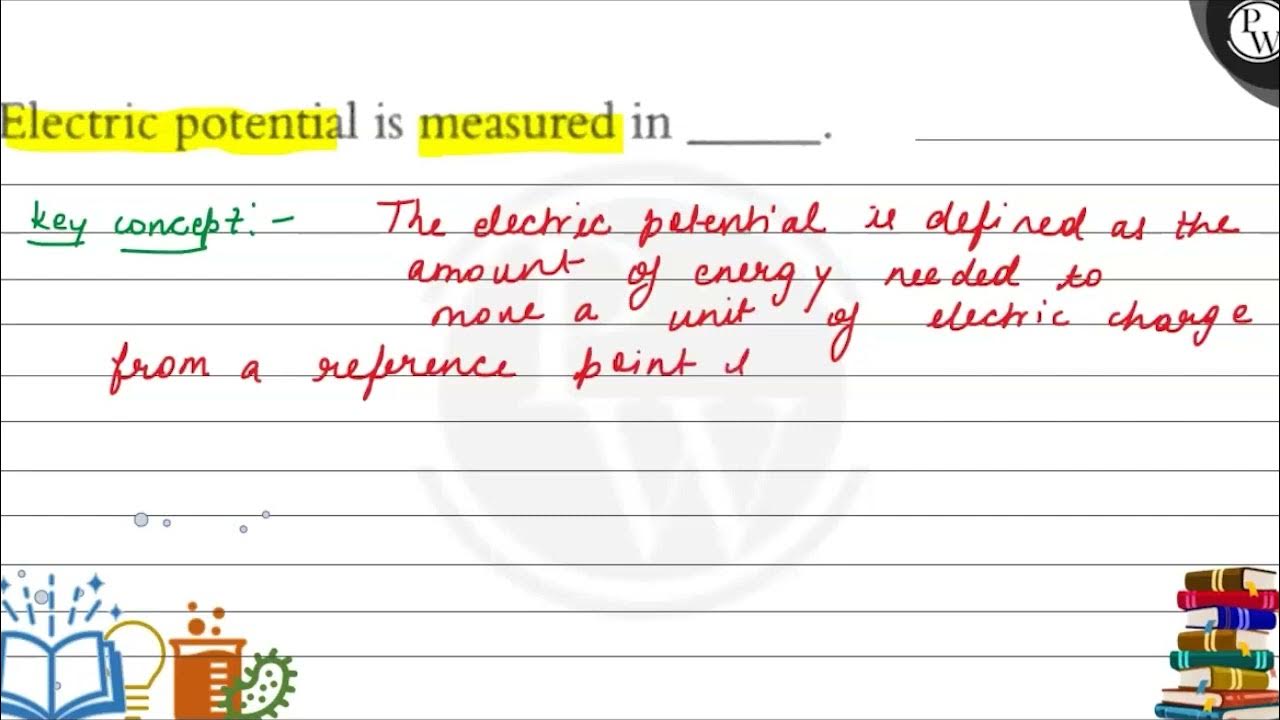 PW
Electric potential is measured in ______.
key concept:- The electric potential is defined as the
amount of energy needed to
move a unit of electric charge
from a reference point
PW